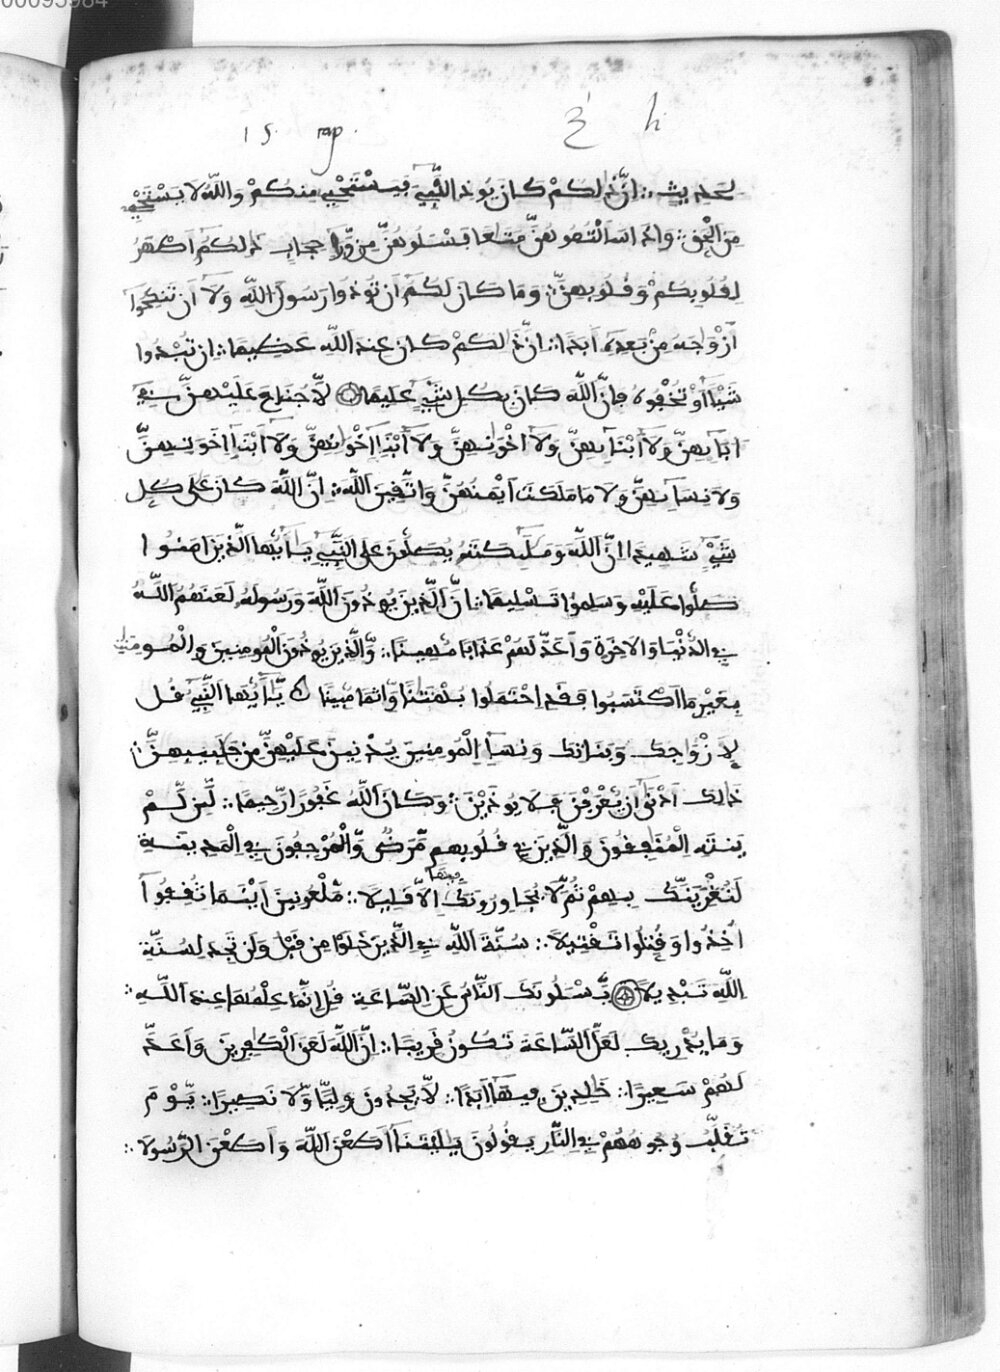 00095984
15. rap. خ h
لحديث ∴ إنّ ذلكم كان يوذ النّبيّ فيستحي منكم والله لا يستحي
من الحق ∴ وإذا سألتموهنّ متعا فسئلوهنّ من وّرا حجاب ذلكم أطهر
لقلوبكم وقلوبهنّ ∴ وما كان لكم أن توذوا رسول الله ولا أن تنكحوا
أزواجه من بعده أبدا ∴ إنّ ذلكم كان عند الله عظيما ∴ إن تبدوا
شيئا أو تخفوه فإنّ الله كان بكل شيء عليما لّا جناح عليهنّ في
ابآيهنّ ولا أبنآيهنّ ولا اخونهنّ ولا أبنآ اخونهنّ ولا أبنآ اخوتهنّ
ولا نسآيهنّ ولا ما ملكت أيمنهنّ واتّقين الله ∴ إنّ الله كان على كل
شيء شهيدا إنّ الله وملٓيكته يصلّون على النّبيّ يأيّها الّذين امنوا
صلّوا عليه وسلموا تسليما ∴ إنّ الّذين يوذون الله ورسوله لعنهم الله
في الدّنيا والاخرة وأعدّ لهم عذابا مّهينا ∴ وّالّذين يوذون المومنين والمومنت
بغير ما اكتسبوا فقد احتملوا بهتنا وّاثما مّبينا يّأيّها النّبيّ قل
لازواجك وبناتك ونسآ المومنين يدنين عليهنّ من جلبيبهنّ ∴
ذلك أدنى أن يعرفن فلا يوذين ∴ وكان الله غفورا رّحيما ∴ لّين لّم
ينته المنفقون والّذين في قلوبهم مّرض وّالمرجفون في المدينة
لنغرينّك بهم ثم لا يجاورونك فيها الّا قليلا ∴ مّلعونين أينما ثقفوا
أخذوا وقتّلوا تقتيلا ∴ سنّة الله في الّذين خلوا من قبل ولن تجد لسنّة
الله تبديلا يّسئلونك النّاس عن السّاعة قل إنّما علمها عند الله ∴
وما يدريك لعلّ السّاعة تكون قريبا ∴ إنّ الله لعن الكفرين وأعدّ
لهم سعيرا ∴ خلدين فيها أبدا ∴ لّا يجدون وليّا وّلا نصيرا ∴ يّوم
تقلّب وجوههم في النّار يقولون يليتنا أطعن الله وأطعن الرّسولا ∴